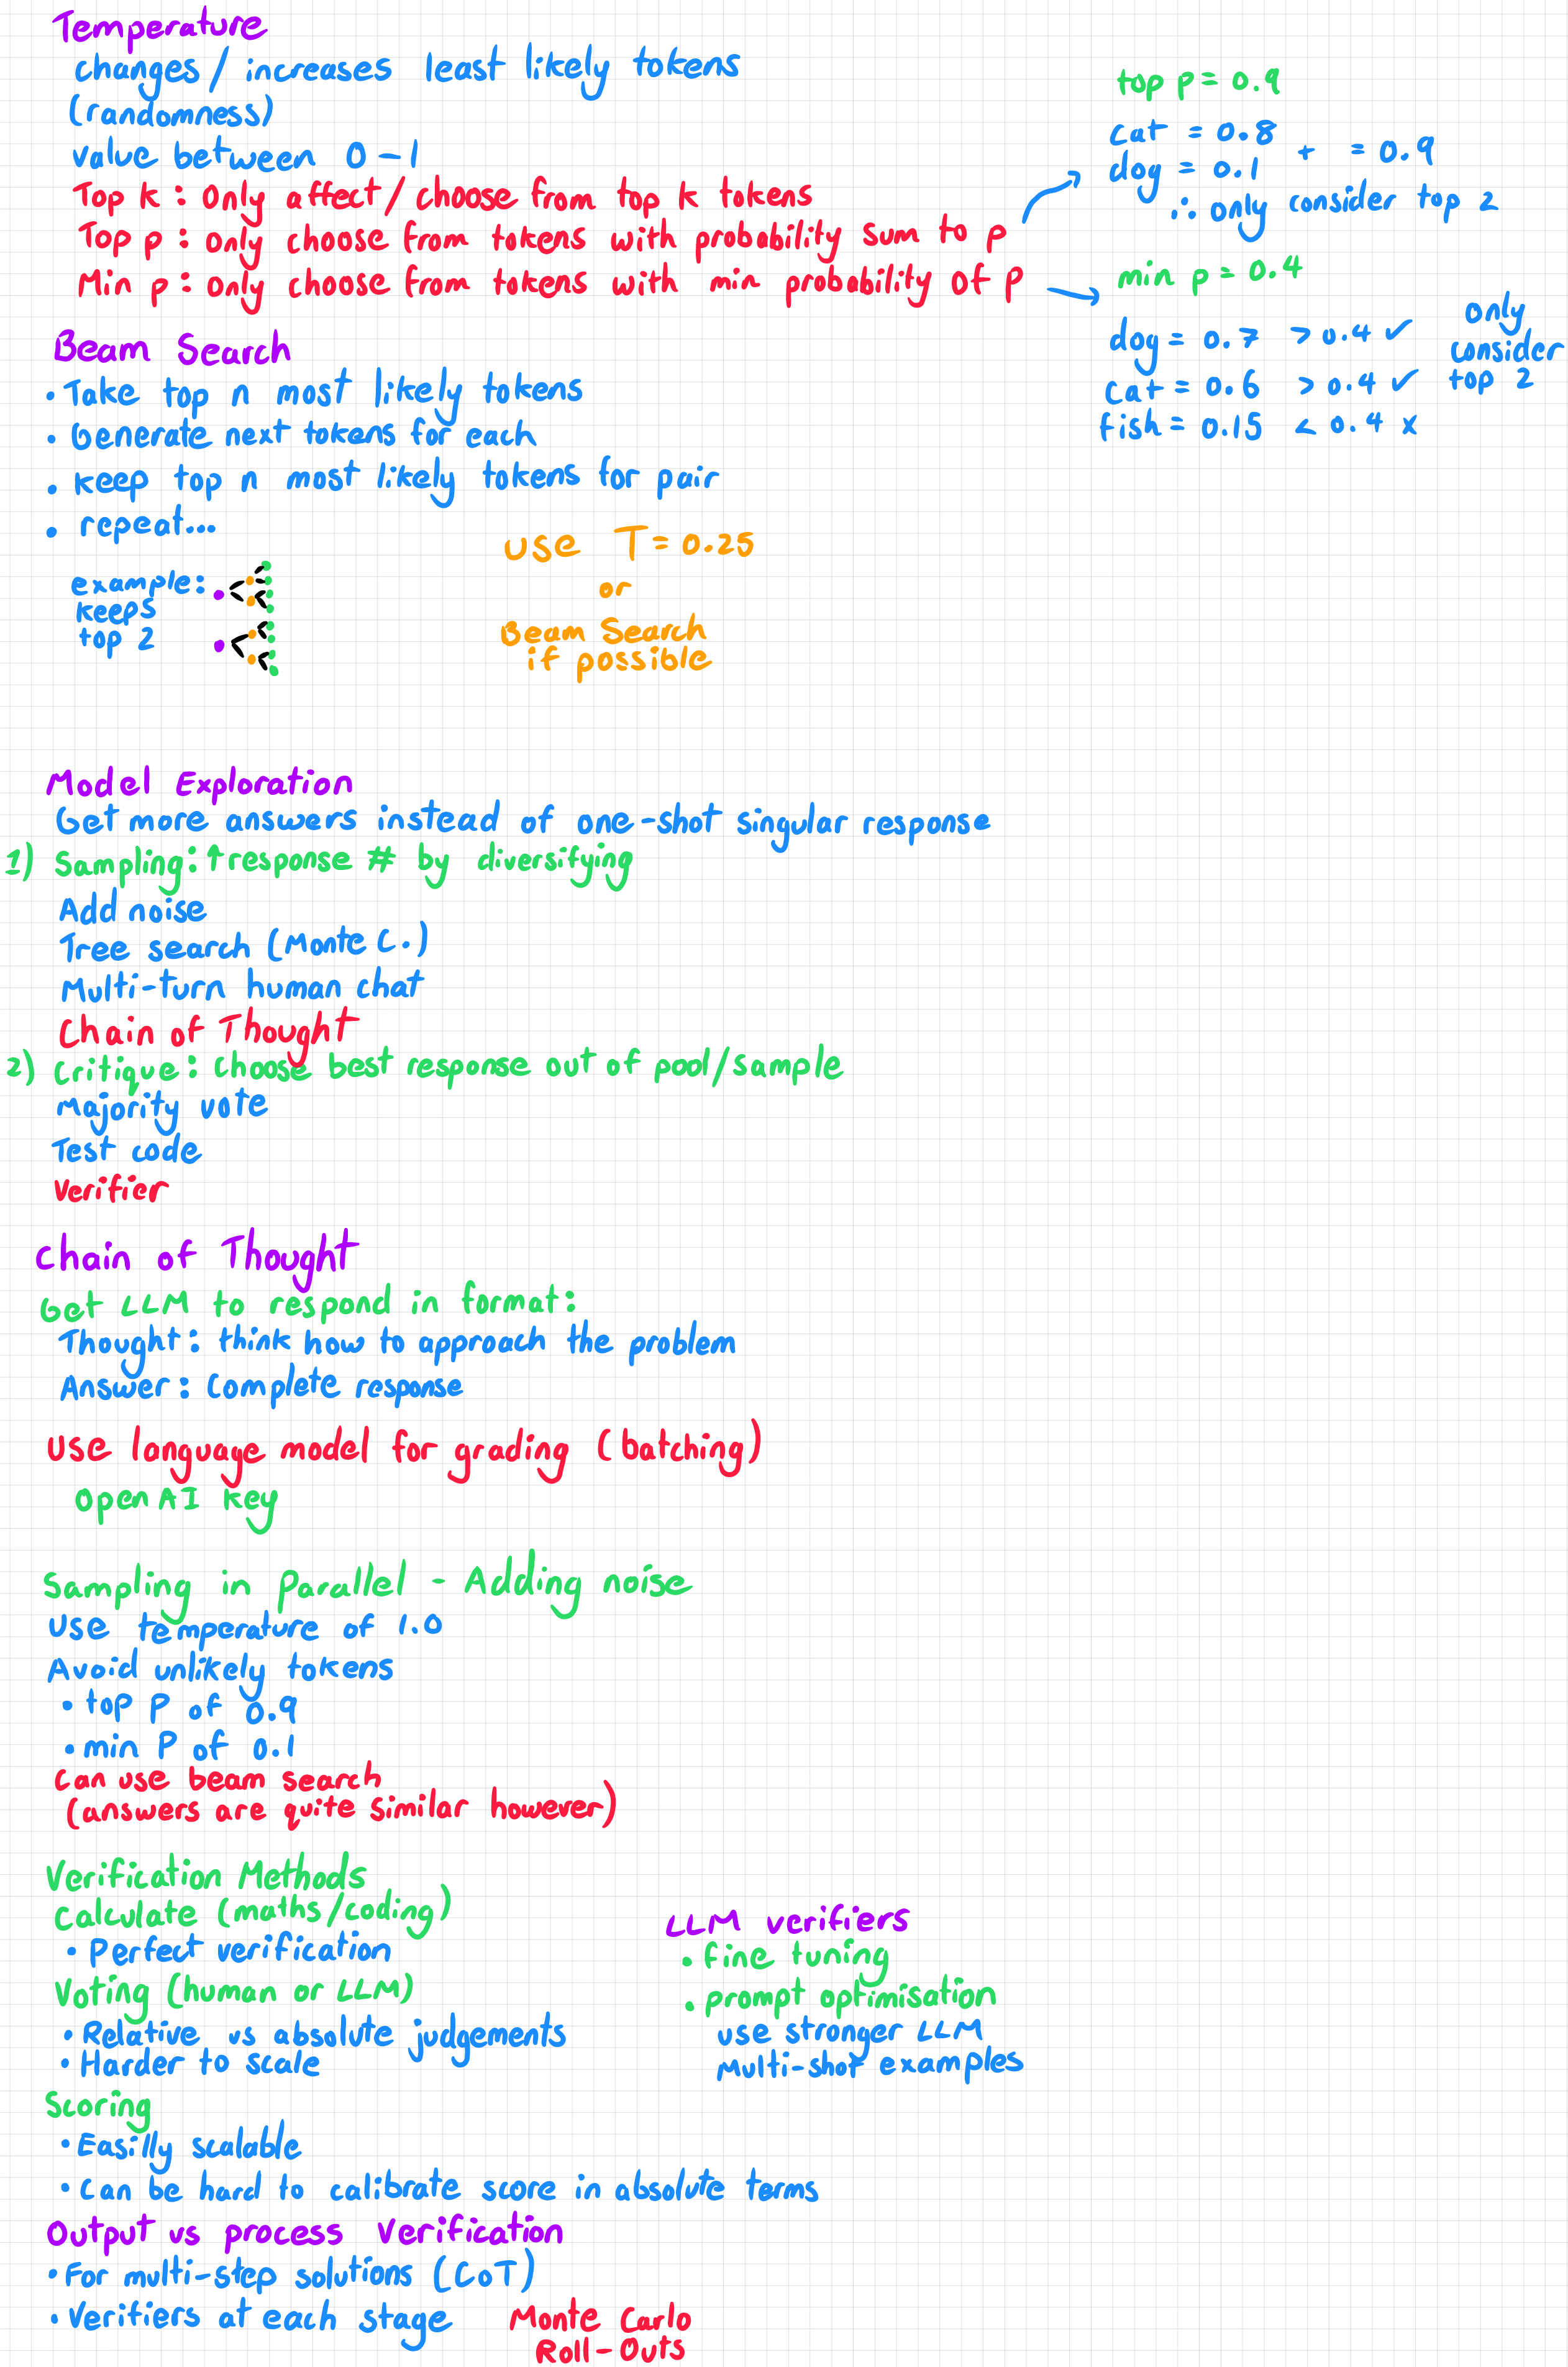 Temperature
changes / increases least likely tokens
(randomness)
value between 0-1
Top k : only affect/choose from top k tokens
Top p : only choose from tokens with probability sum to p
Min p : only choose from tokens with min probability of p
top p = 0.9
cat = 0.8
dog = 0.1 + = 0.9
∴ only consider top 2
min p = 0.4
dog = 0.7 > 0.4 ✓
cat = 0.6 > 0.4 ✓
fish = 0.15 < 0.4 x
only
consider
top 2
Beam Search
• Take top n most likely tokens
• Generate next tokens for each
• keep top n most likely tokens for pair
• repeat...
example:
keeps
top 2
use T = 0.25
or
Beam Search
if possible
Model Exploration
Get more answers instead of one-shot singular response
1) Sampling: ↑response # by diversifying
Add noise
Tree search (Monte C.)
Multi-turn human chat
Chain of Thought
2) Critique: Choose best response out of pool/sample
Majority vote
Test code
Verifier
Chain of Thought
Get LLM to respond in format:
Thought: think how to approach the problem
Answer: Complete response
Use language model for grading (batching)
OpenAI key
Sampling in Parallel - Adding noise
Use temperature of 1.0
Avoid unlikely tokens
• top P of 0.9
• min P of 0.1
Can use beam search
(answers are quite similar however)
Verification Methods
Calculate (maths/coding)
• Perfect verification
Voting (human or LLM)
• Relative vs absolute judgements
• Harder to scale
Scoring
• Easilly scalable
• Can be hard to calibrate score in absolute terms
LLM verifiers
• fine tuning
• prompt optimisation
use stronger LLM
Multi-shot examples
Output vs process Verification
• For multi-step solutions (CoT)
• Verifiers at each stage
Monte Carlo
Roll-Outs